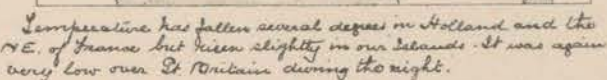 Temperature has fallen several degrees in Holland and the
NE. of France but risen slightly in our Islands. It was again
very low over Gt Britain during the night.